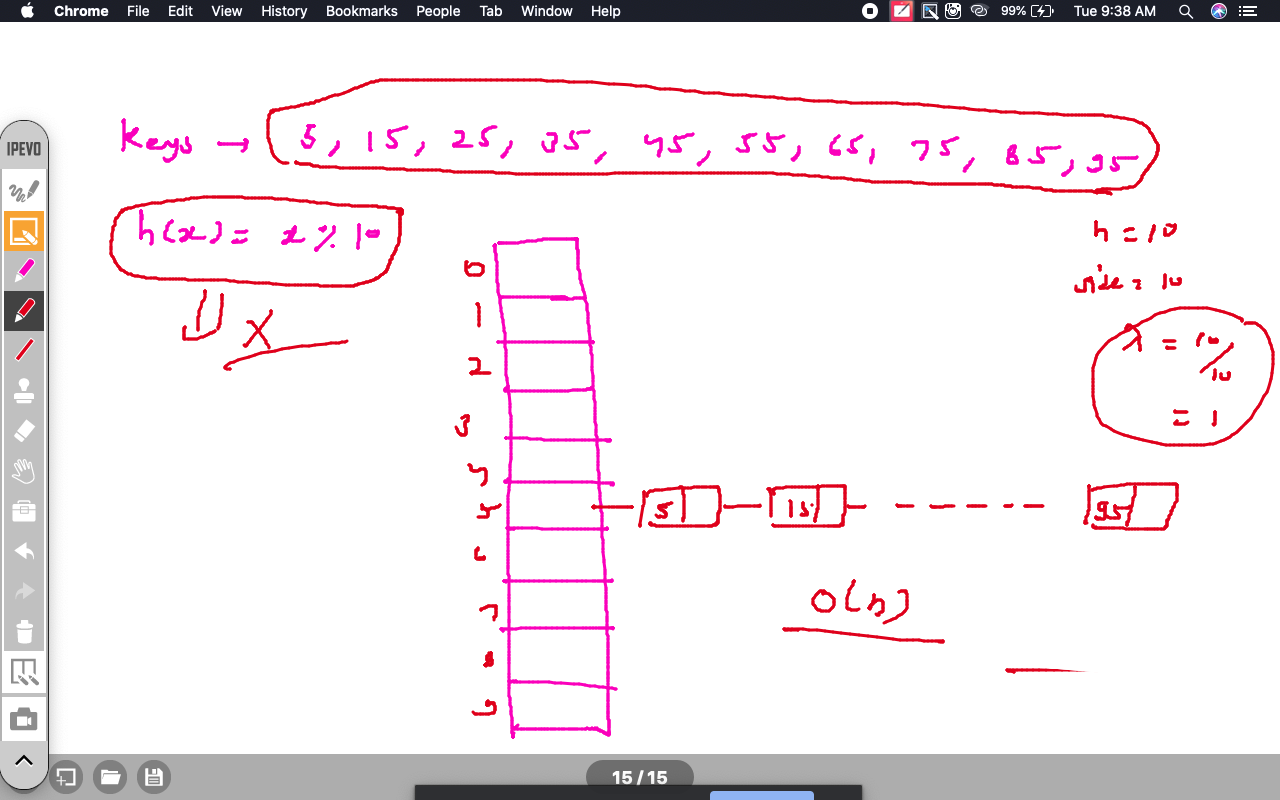 Chrome File Edit View History Bookmarks People Tab Window Help 99% Tue 9:38 AM
IPEVO
Keys → 5, 15, 25, 35, 45, 55, 65, 75, 85, 95
h(x) = x % 10
X
n = 10
size = 10
λ = 10/10
= 1
0
1
2
3
4
5
5 15 95
6
7
8
9
O(n)
15 / 15